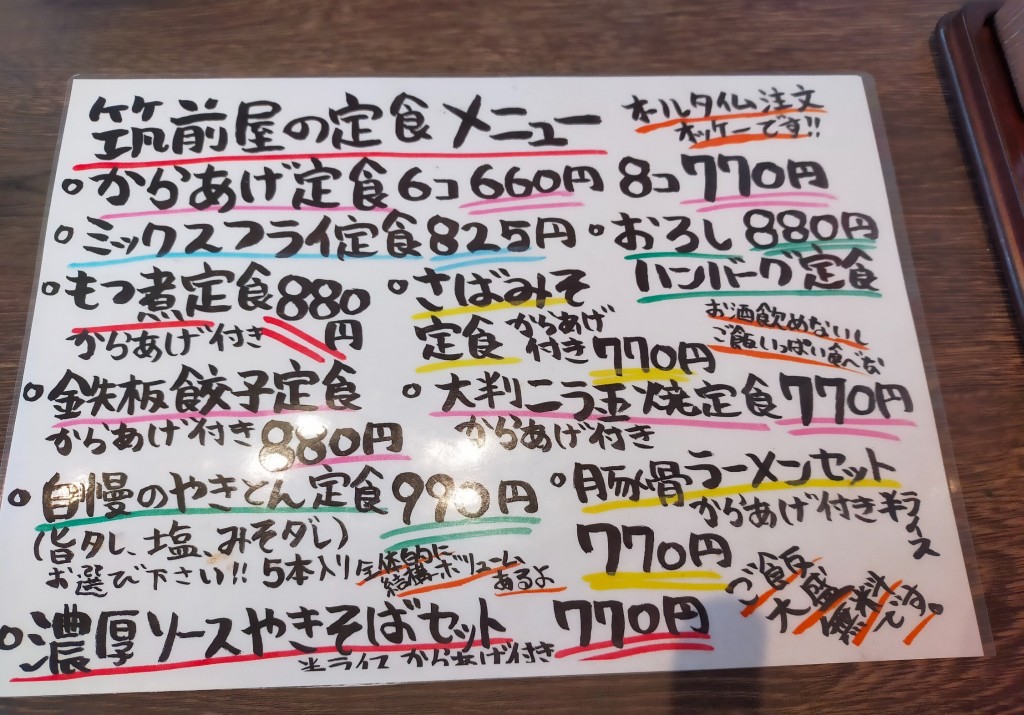 筑前屋の定食メニュー
オールタイム注文
オッケーです!!
。からあげ定食6コ660円 8コ770円
。ミックスフライ定食825円
。おろし880円
ハンバーグ定食
。もつ煮定食880円
からあげ付き
。さばみそ
定食 からあげ付き 770円
お酒飲めないし
ご飯いっぱい食べな
。鉄板餃子定食
からあげ付き880円
。大判ニラ玉焼定食770円
からあげ付き
。自慢のやきとん定食990円
(旨タレ、塩、みそダレ)
お選び下さい!! 5本入り
全体的に
結構ボリューム
あるよ
。豚骨ラーメンセット
からあげ付き半ライス
770円
ご飯
大盛無料
です。
。濃厚ソースやきそばセット 770円
半ライス からあげ付き